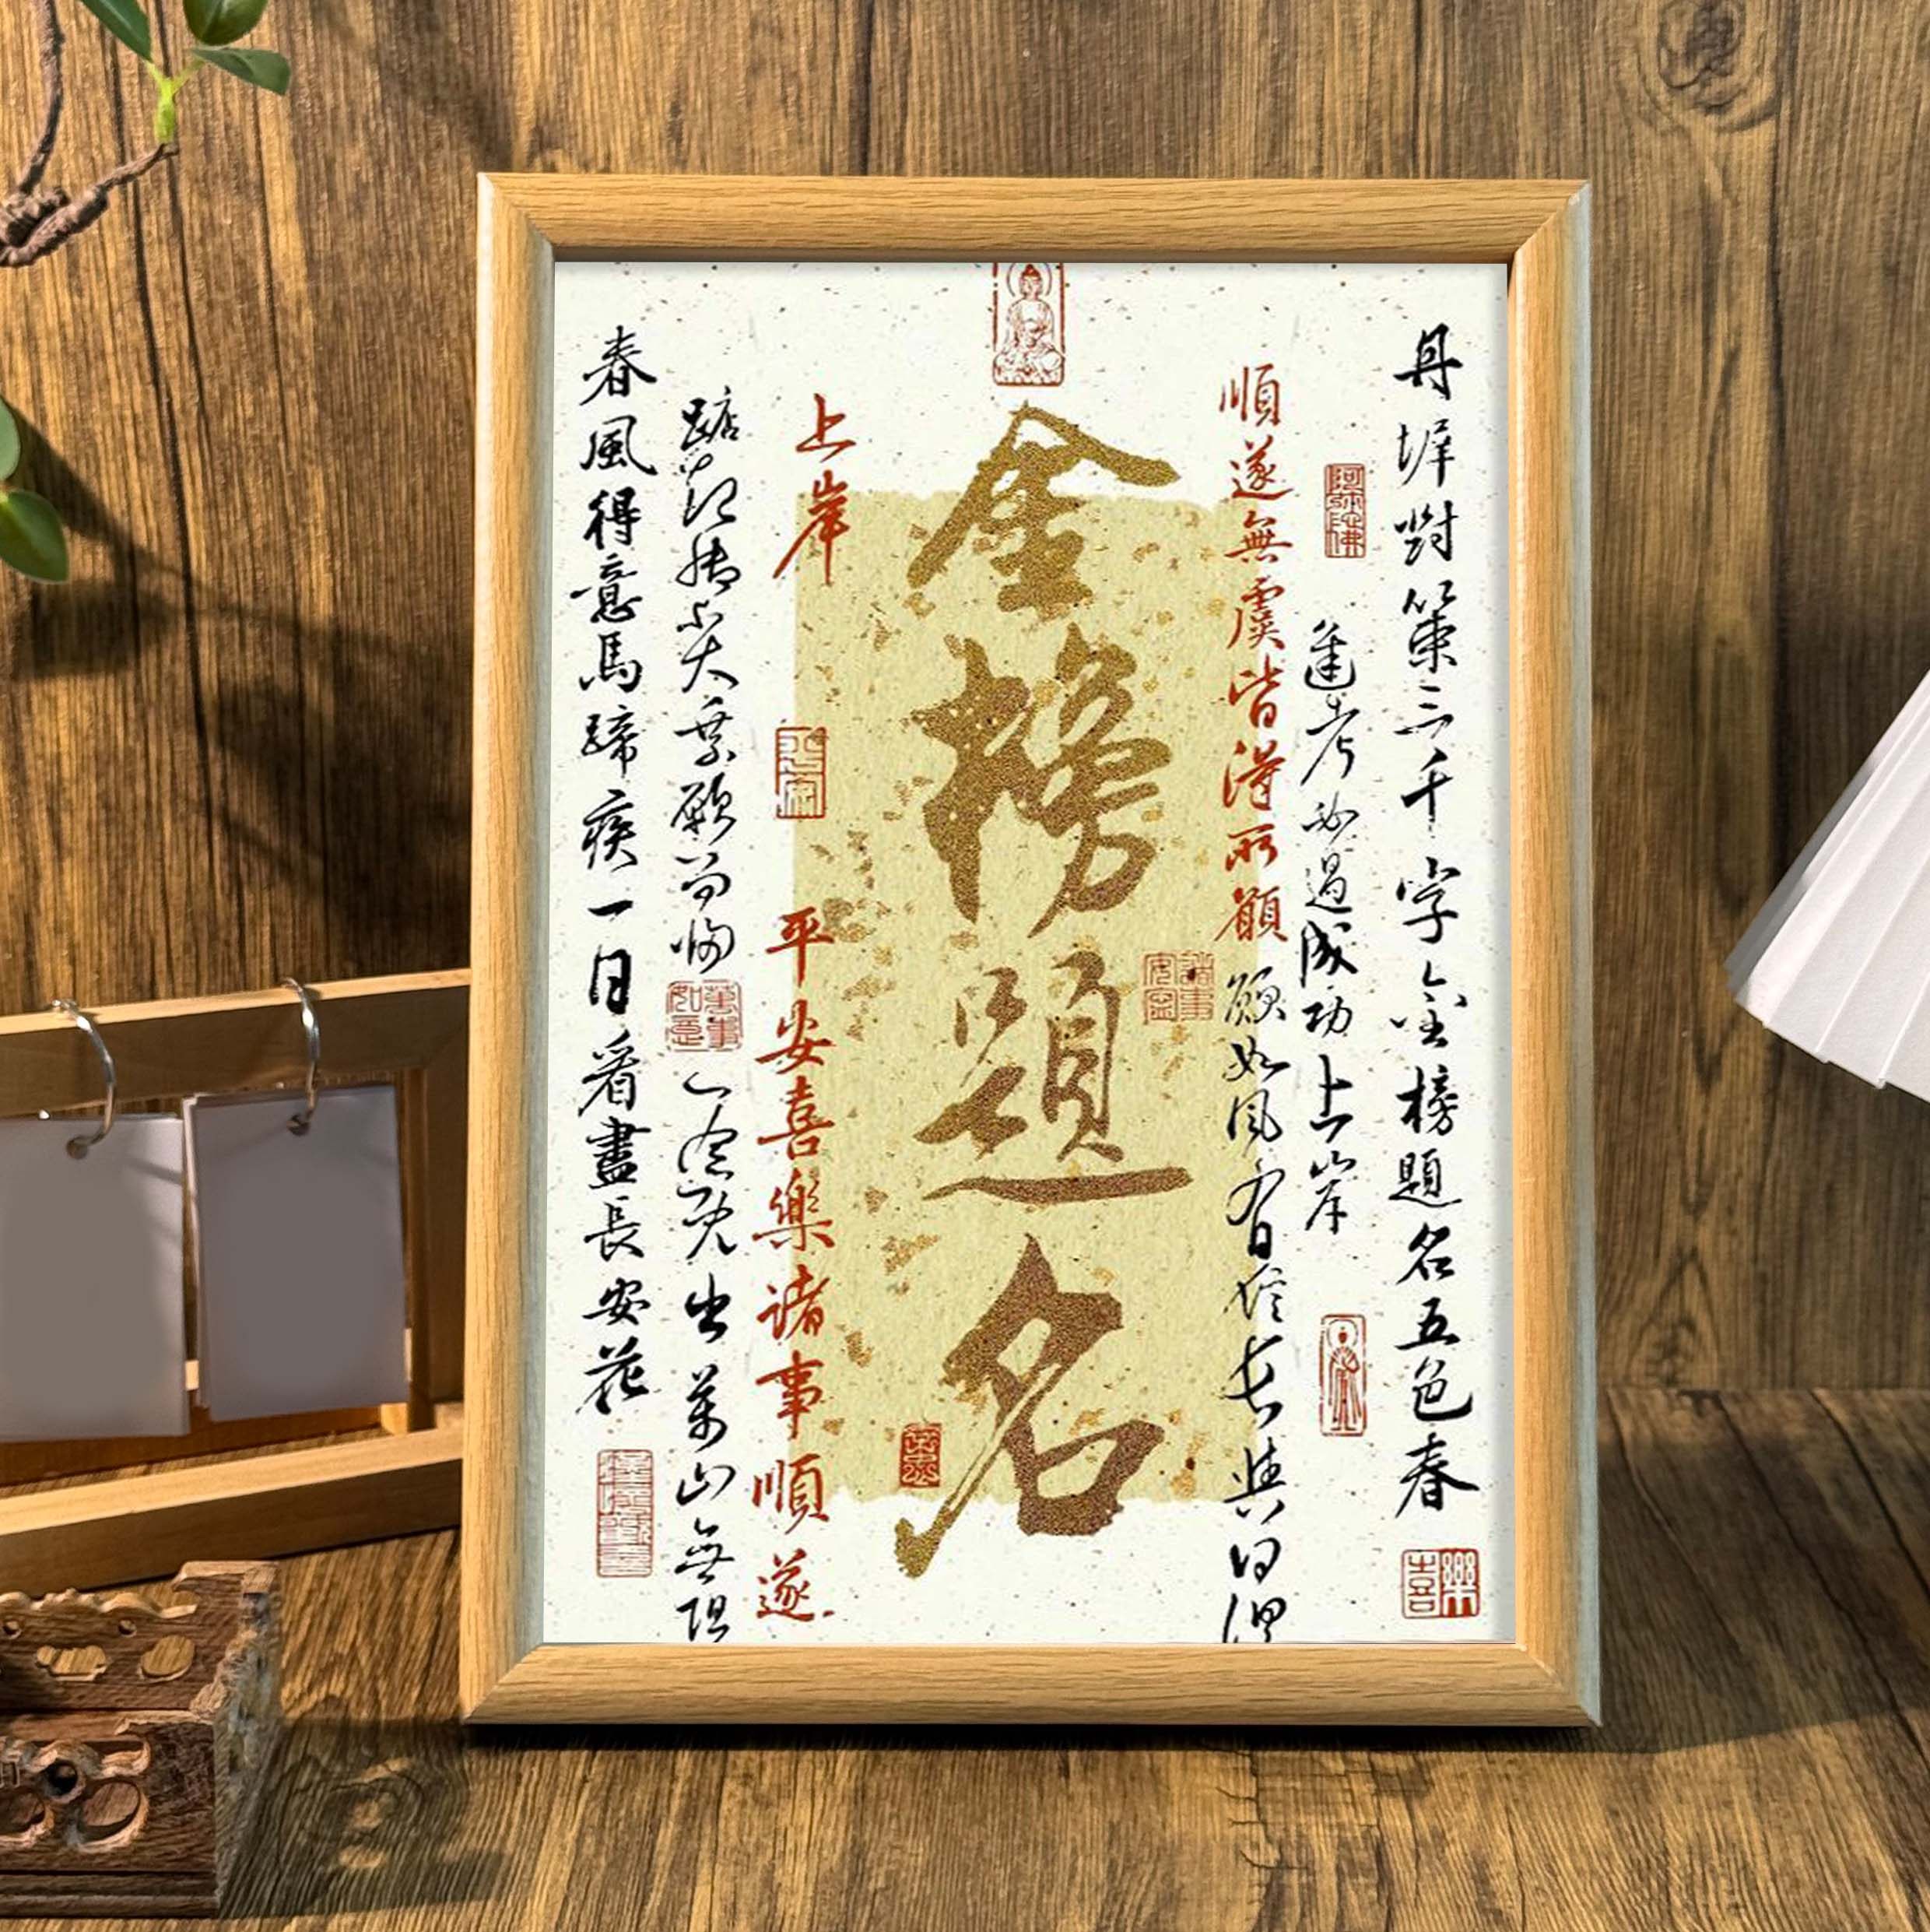 丹墀對策三千字金榜題名五色春
逢考必過成功上岸
順遂無虞皆得所願
願如風有信長與日俱
金榜題名
上岸
平安
平安喜樂諸事順遂
萬事如意
一念既出萬山無阻
春風得意馬蹄疾一日看盡長安花